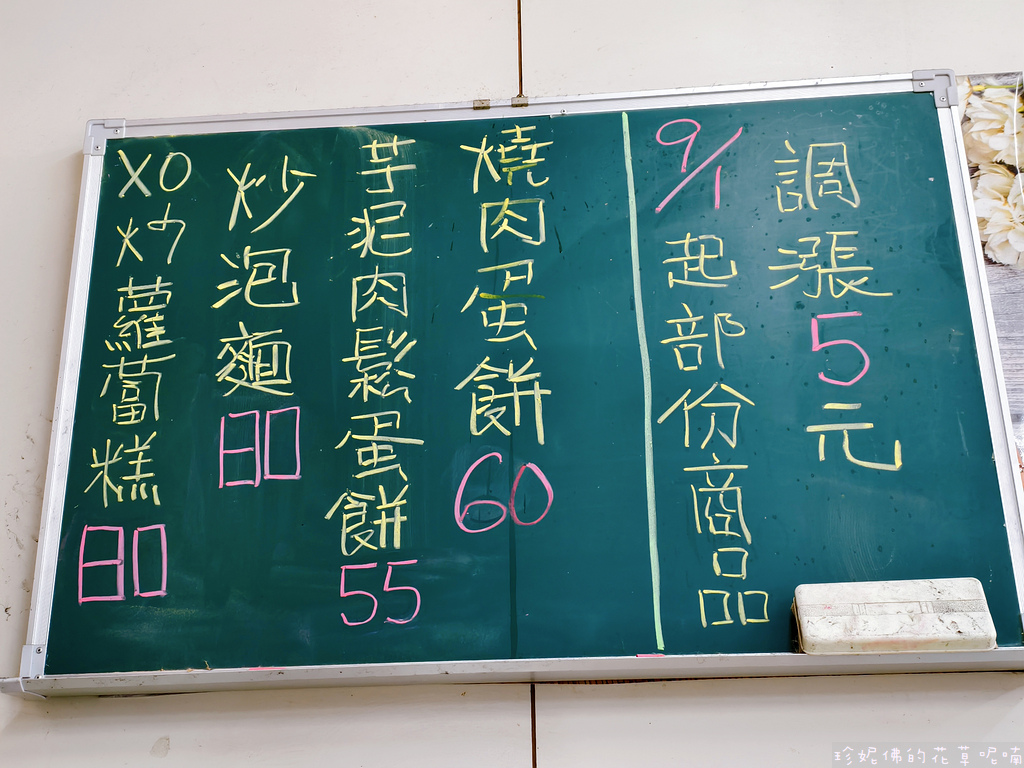 調漲5元
9/1起部份商品
燒肉蛋餅60
芋泥肉鬆蛋餅55
炒泡麵80
XO炒蘿蔔糕80
珍妮佛的花草呢喃